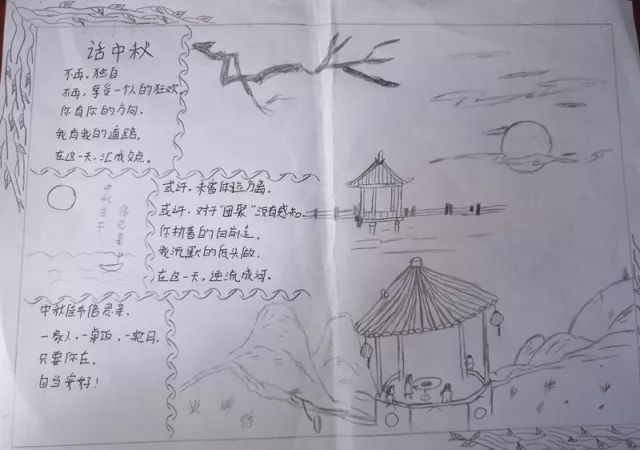 话中秋
不再，独自
不再，享受一个人的狂欢
你有你的方向，
我有我的道路，
在这一天，汇成交点。
中秋佳节
倍思亲
或许，未曾体验分离，
或许，对于“团聚”没有感知。
你执着的向前走，
我沉默的低头做，
在这一天，逆流成河。
中秋佳节倍思亲，
一家人，一桌饭，一轮月，
只要你在，
自当安好！